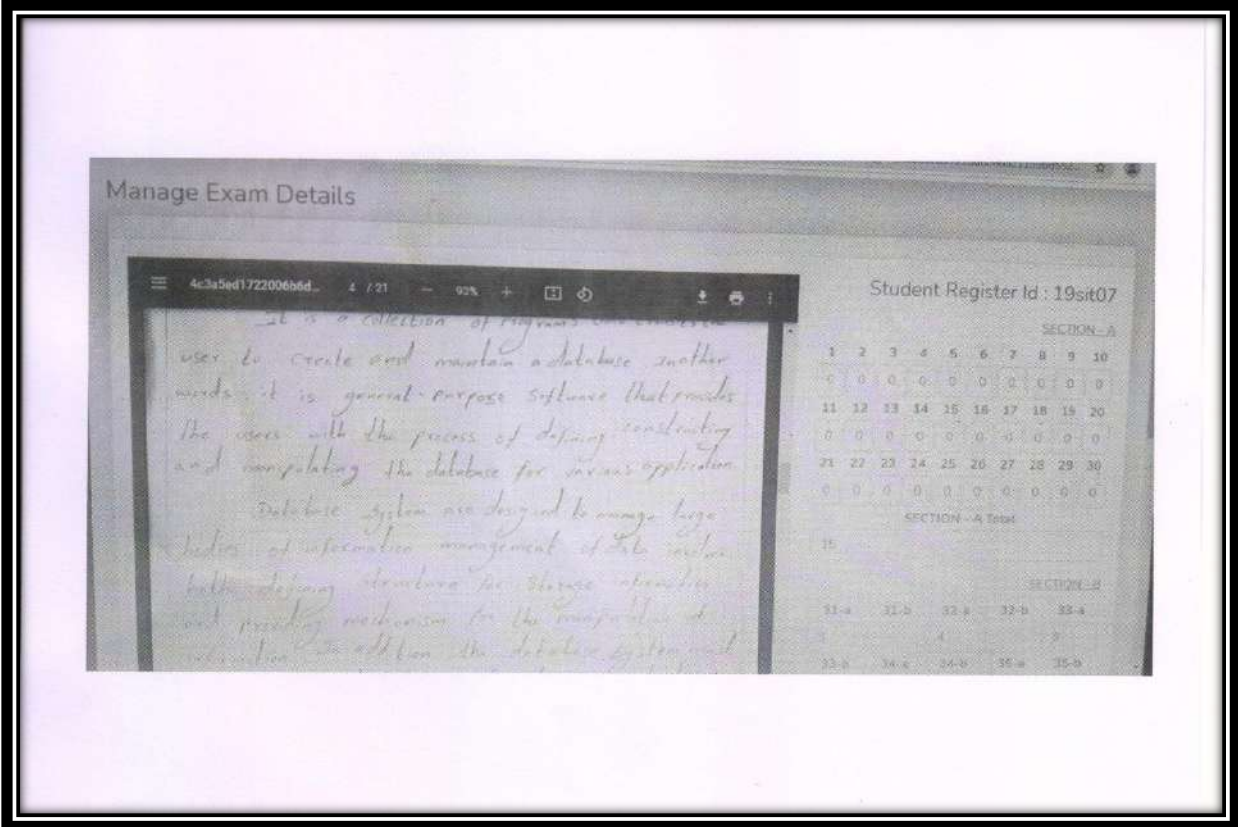 Manage Exam Details
4c3a5ed1722006b6d... 4 / 21 — 93% +
It is a collection of programs
user to create and maintain a database another
words it is general-purpose software that provides
the users with the process of defining constructing
and manipulating the database for various application
Database system are designed to manage large
bodies of information management of data involve
both defining structure for storage information
and providing mechanism for the manipulation of
In addition the database system must
Student Register Id : 19sit07
SECTION - A
1 2 3 4 5 6 7 8 9 10
0 0 0 0 0 0 0 0 0 0
11 12 13 14 15 16 17 18 19 20
0 0 0 0 0 0 0 0 0 0
21 22 23 24 25 26 27 28 29 30
0 0 0 0 0 0 0 0 0 0
SECTION - A Total
SECTION - B
31-a 31-b 32-a 32-b 33-a
4
33-b 34-a 34-b 35-a 35-b